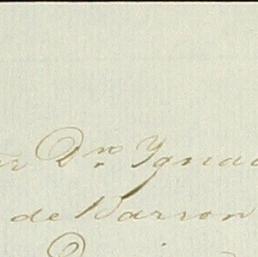 or Dn. Ygnac
de Barron